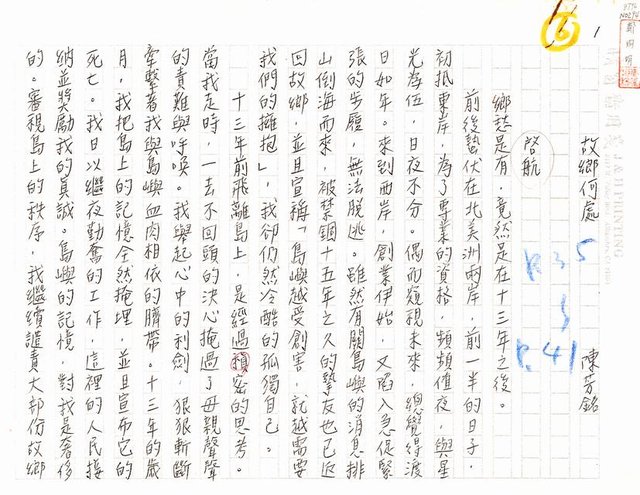 故鄉何處
陳芳銘
啓航
鄉誌是有，竟然是在十三年之後。
前後蟄伏在北美洲兩岸，前一半的日子，
初抵東岸，為了專業的資格，頻頻值夜，與星
光為伍，日夜不分。偶而窺視未來，總覺得渡
日如年。來到西岸，創業伊始，又陷入急促緊
張的步履，無法脫逃。雖然有關島嶼的消息排
山倒海而來，被禁錮十五年之久的摯友也已近
回故鄉，並且宣稱「島嶼越受創害，就越需要
我們的擁抱」，我卻仍然冷酷的孤獨自己。
十三年前飛離島上，是經過縝密的思考。
當我走時，一去不回頭的決心掩過了母親聲聲
的責難與呼喚。我舉起心中的利劍，狠狠斬斷
牽繫著我與島嶼血肉相依的臍帶。十三年的歲
月，我把島上的記憶全然掩埋，並且宣布它的
死亡。我日以繼夜勤奮的工作，這裡的人民接
納並獎勵我的真誠。島嶼的記憶，對我是奢侈
的。審視島上的秩序，我繼續譴責大部份故鄉
P.35
P.41
6
1